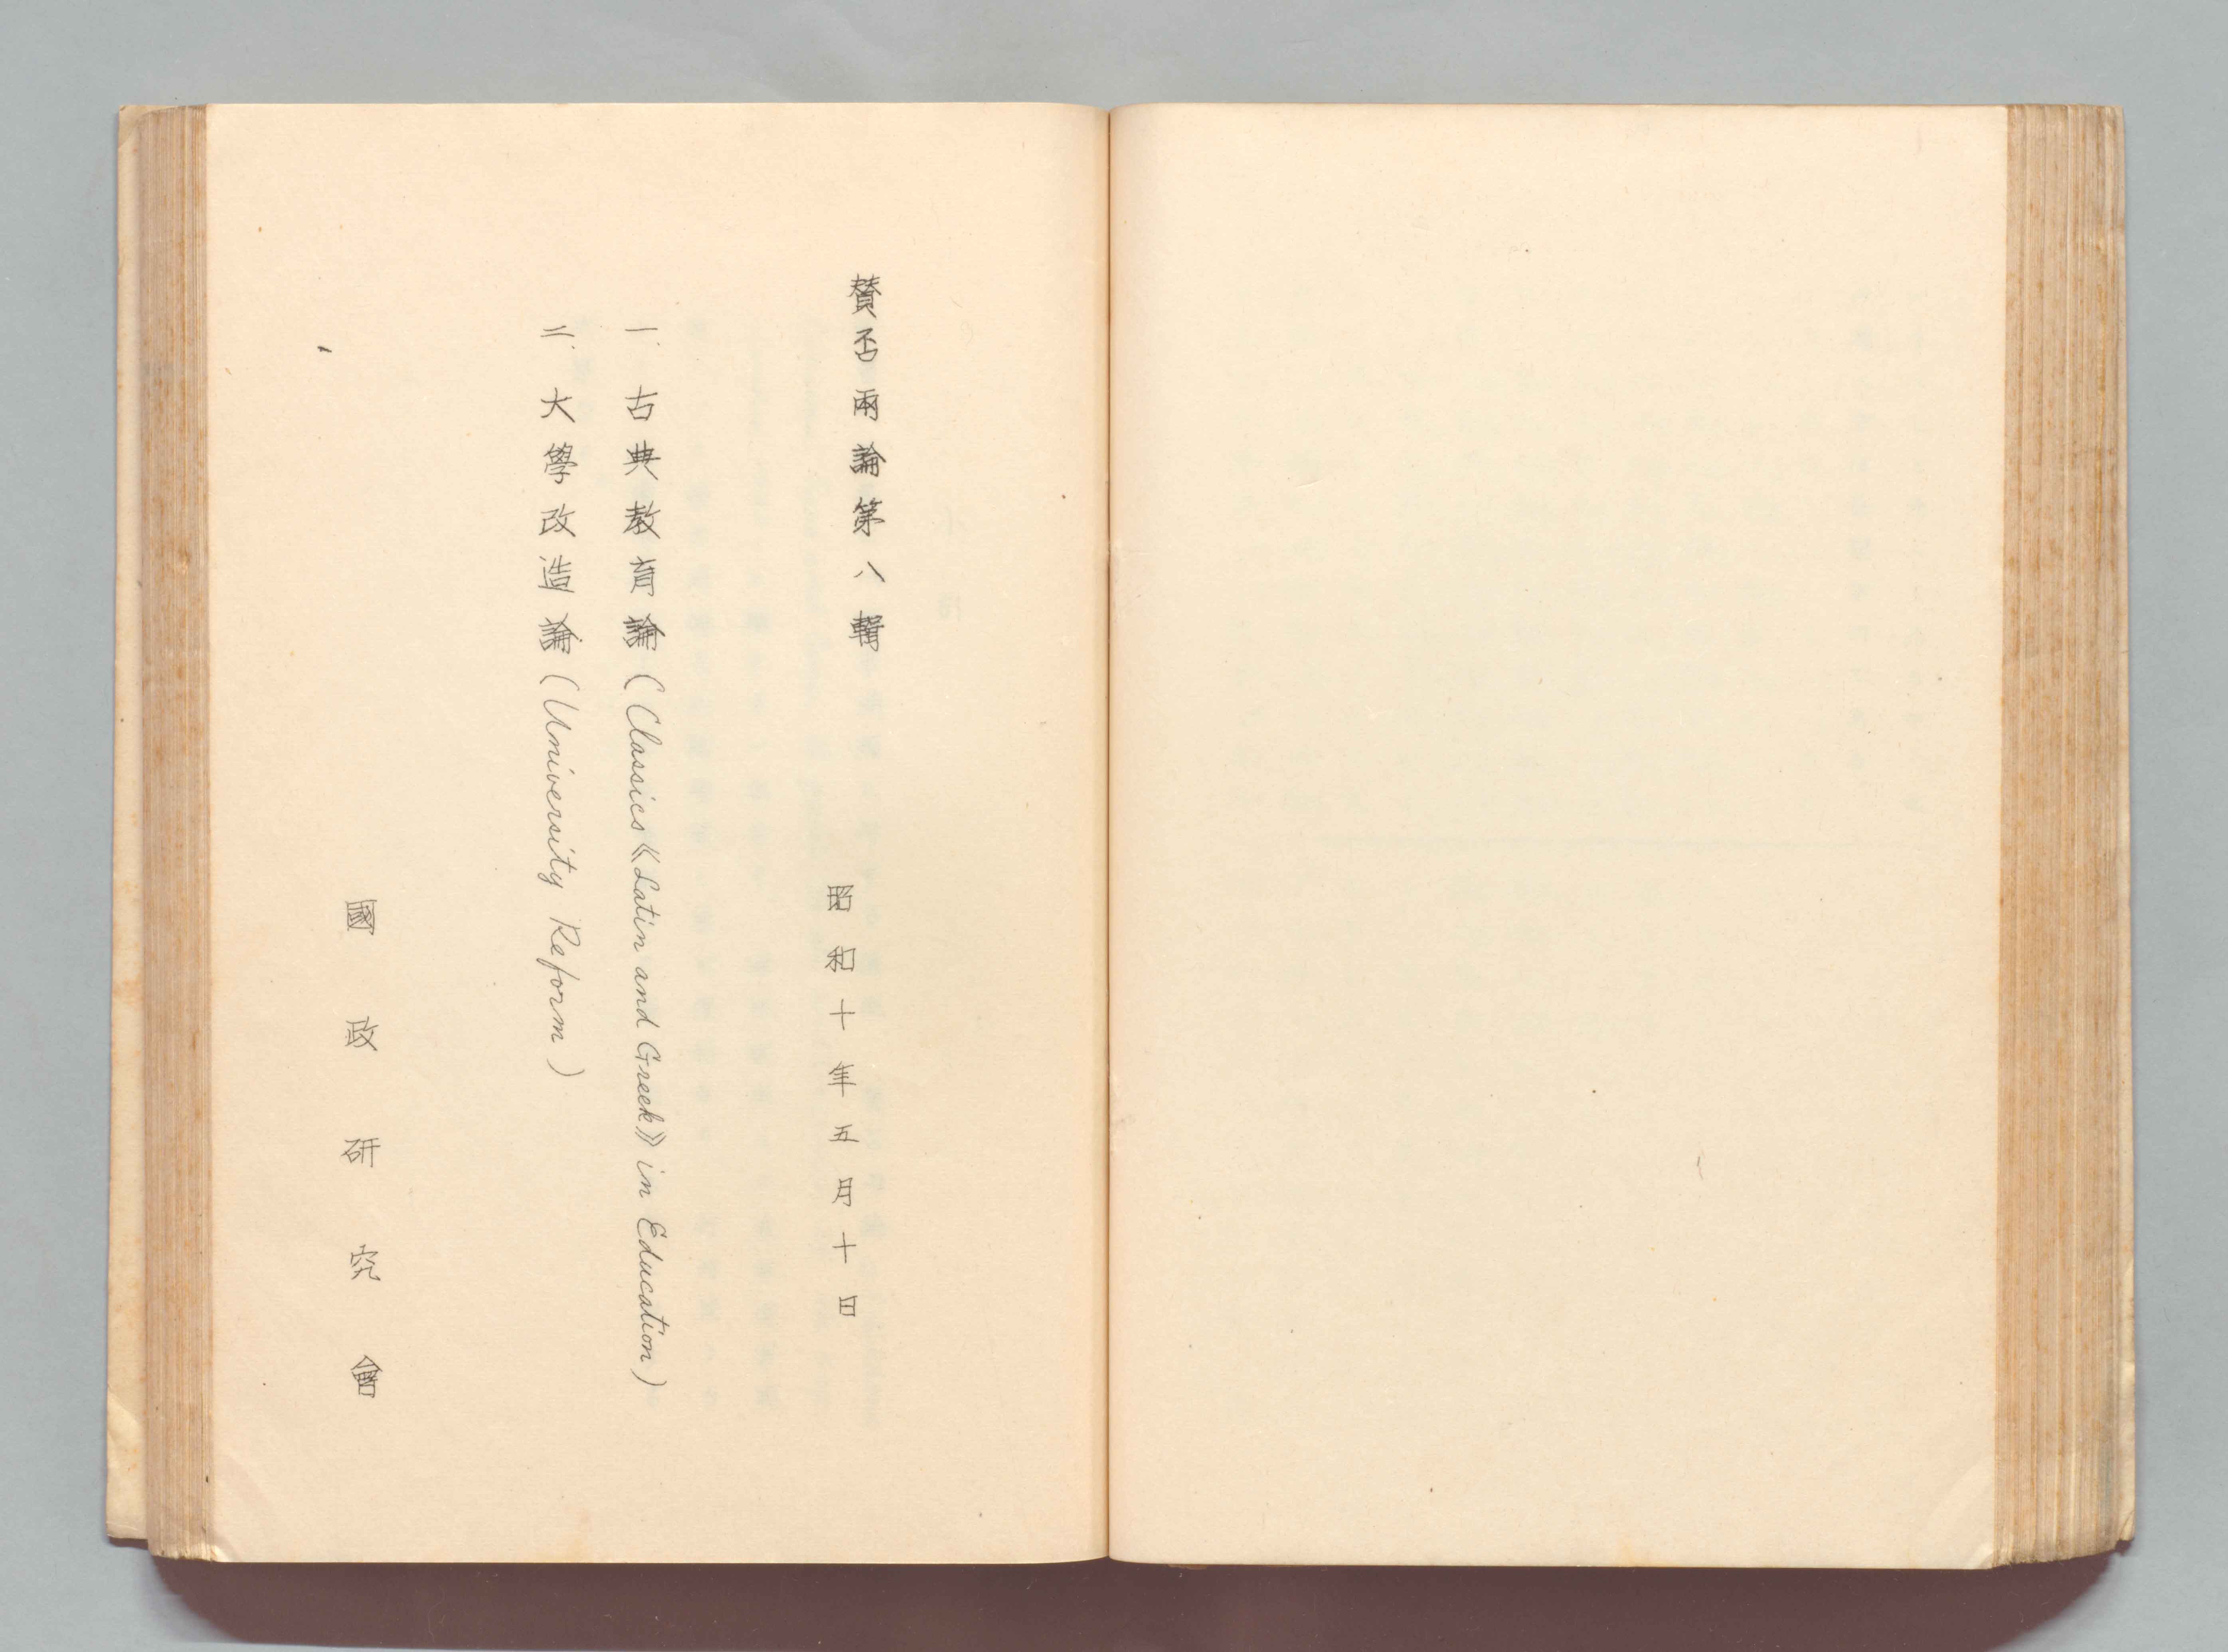 贊否兩論第八輯
昭和十年五月十日
一、古典教育論(Classics《Latin and Greek》in Education)
二、大學改造論(University Reform)
國政研究會